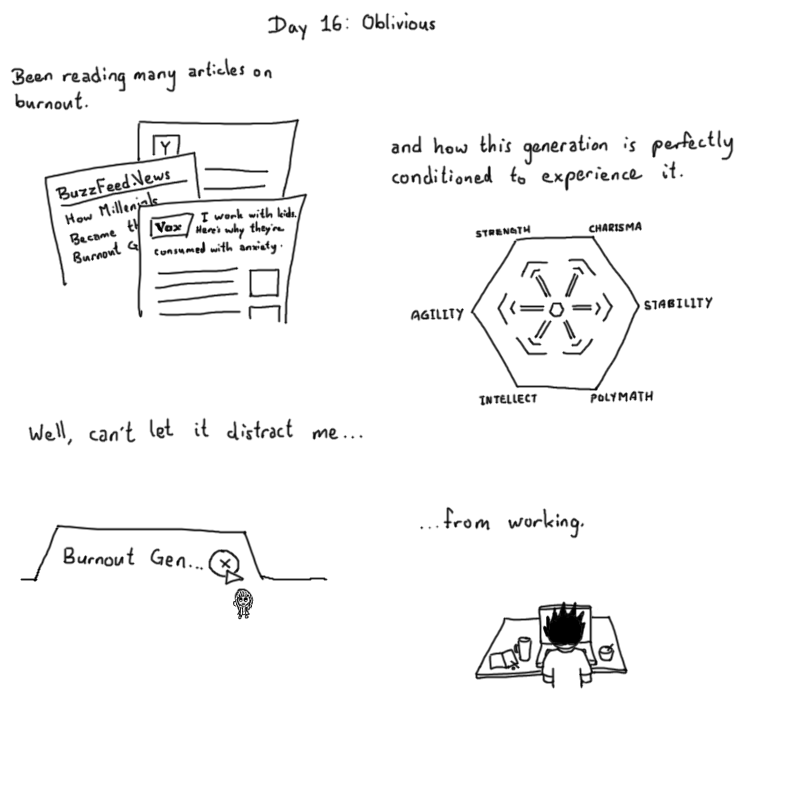 Day 16: Oblivious
Been reading many articles on
burnout.
Y
BuzzFeed.News
How Millenials
Became th
Burnout G
Vox
I work with kids.
Here's why they're
consumed with anxiety.
and how this generation is perfectly
conditioned to experience it.
STRENGTH
CHARISMA
AGILITY
STABILITY
INTELLECT
POLYMATH
Well, can't let it distract me...
Burnout Gen...
...from working.